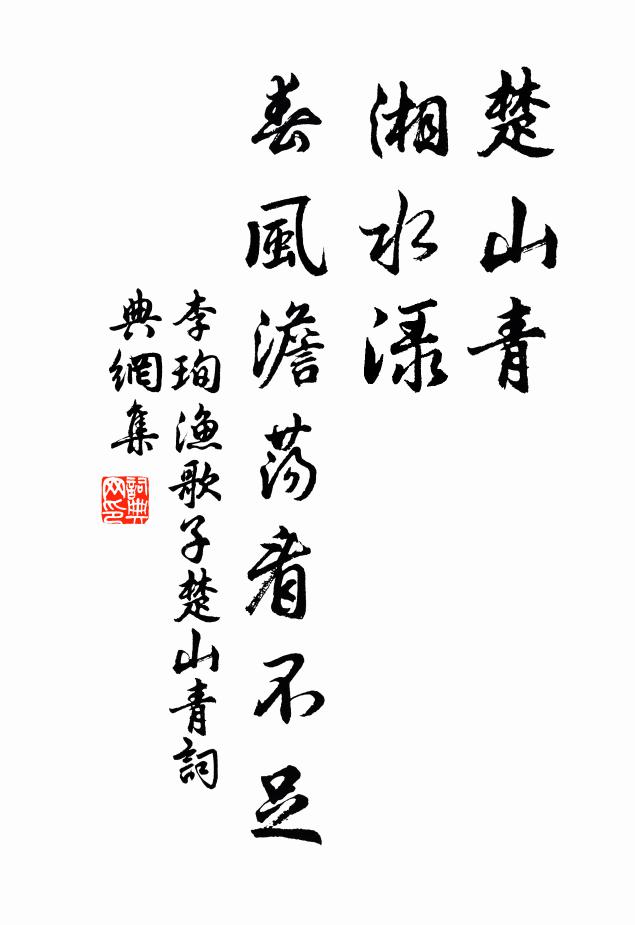 楚山青
湘水渌
春風澹蕩看不足
李珣漁歌子楚山青詞
典網集
詞典網印